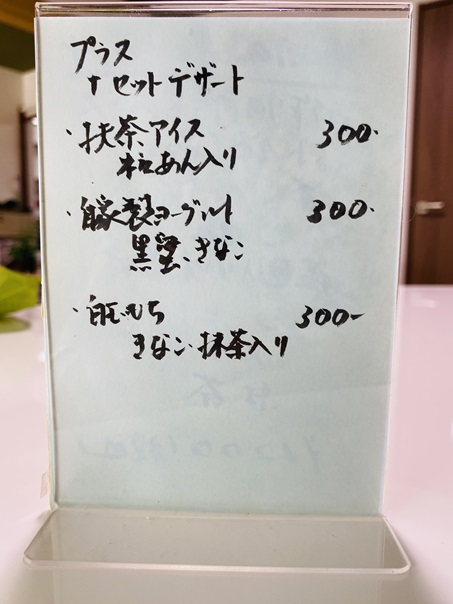 プラス
↑セットデザート
・抹茶アイス 300-
粒あん入り
・自家製ヨーグルト 300-
黒蜜、きなこ
・白玉もち 300-
きなこ・抹茶入り